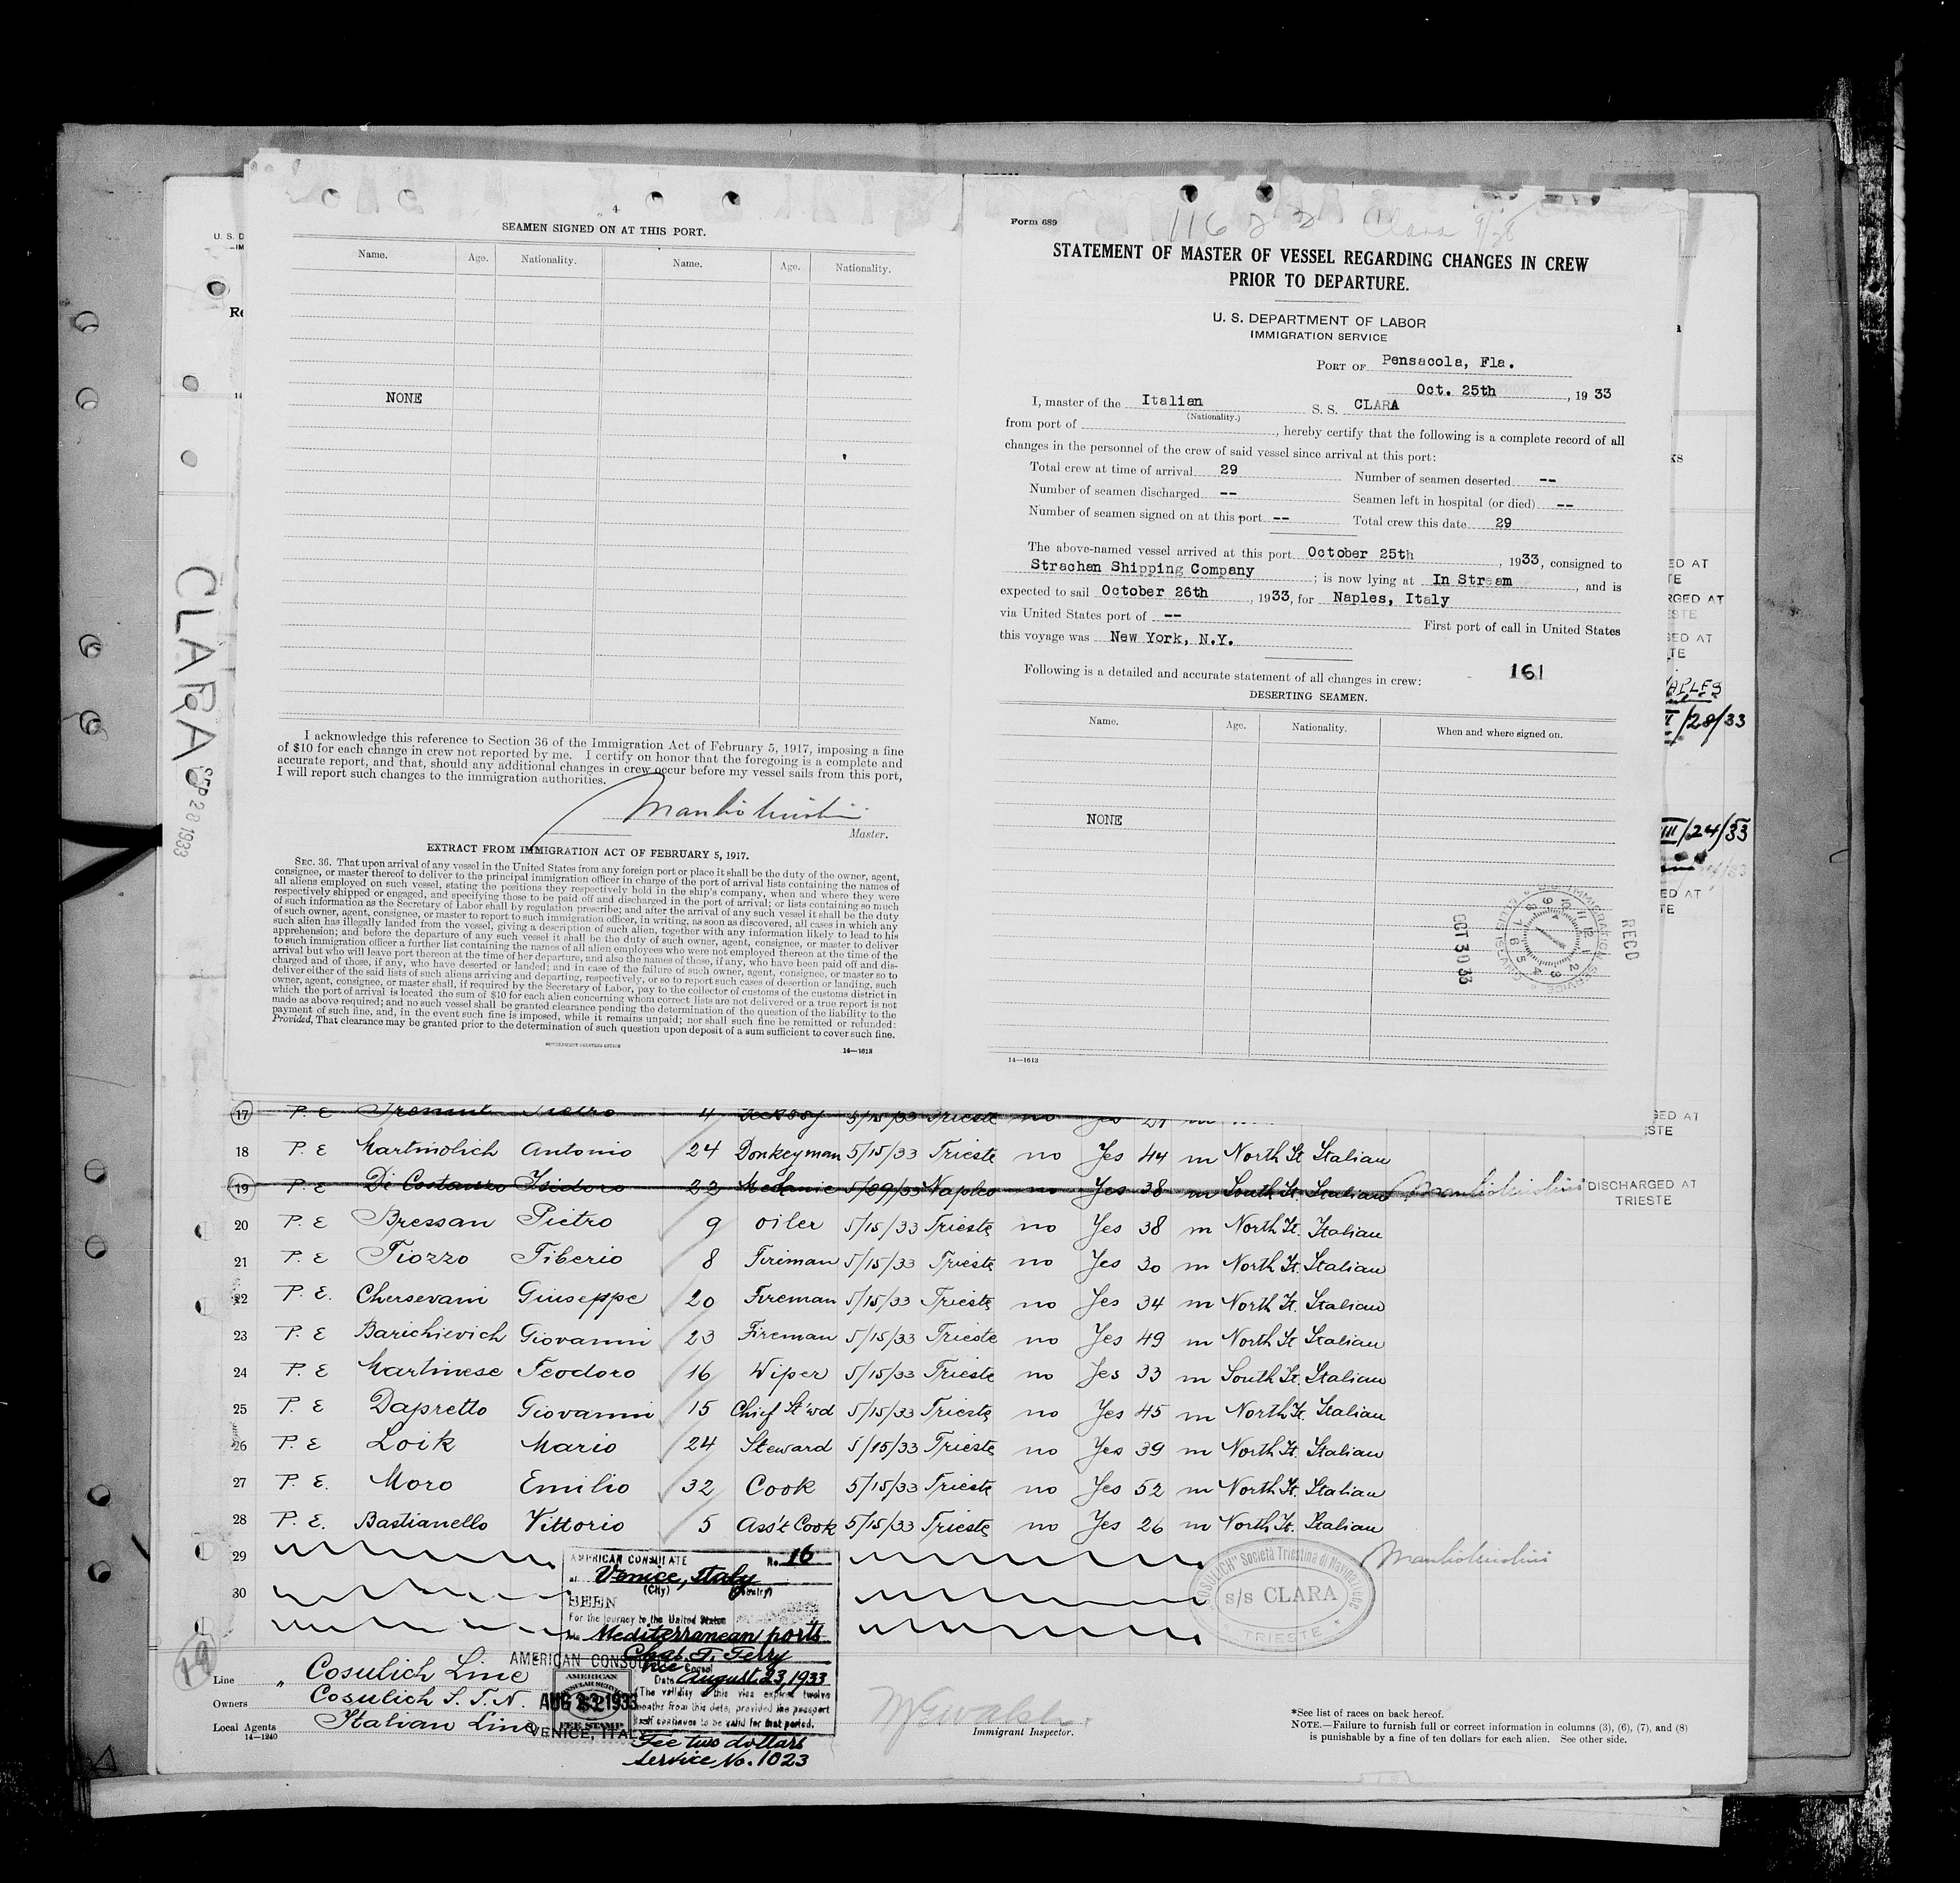 4
SEAMEN SIGNED ON AT THIS PORT.
Name. Age. Nationality. Name. Age. Nationality.
NONE
I acknowledge this reference to Section 36 of the Immigration Act of February 5, 1917, imposing a fine
of $10 for each change in crew not reported by me. I certify on honor that the foregoing is a complete and
accurate report, and that, should any additional changes in crew occur before my vessel sails from this port,
I will report such changes to the immigration authorities.
Master.
EXTRACT FROM IMMIGRATION ACT OF FEBRUARY 5, 1917.
SEC. 36. That upon arrival of any vessel in the United States from any foreign port or place it shall be the duty of the owner, agent,
consignee, or master thereof to deliver to the principal immigration officer in charge of the port of arrival lists containing the names of
all aliens employed on such vessel, stating the positions they respectively hold in the ship's company, when and where they were
respectively shipped or engaged, and specifying those to be paid off and discharged in the port of arrival; or lists containing so much
of such information as the Secretary of Labor shall by regulation prescribe; and after the arrival of any such vessel it shall be the duty
of such owner, agent, consignee, or master to report to such immigration officer, in writing, as soon as discovered, all cases in which any
such alien has illegally landed from the vessel, giving a description of such alien, together with any information likely to lead to his
apprehension; and before the departure of any such vessel it shall be the duty of such owner, agent, consignee, or master to deliver
to such immigration officer a further list containing the names of all alien employees who were not employed thereon at the time of the
arrival but who will leave port thereon at the time of her departure, and also the names of those, if any, who have been paid off and dis-
charged and of those, if any, who have deserted or landed; and in case of the failure of such owner, agent, consignee, or master so to
deliver either of the said lists of such aliens arriving and departing, respectively, or so to report such cases of desertion or landing, such
owner, agent, consignee, or master shall, if required by the Secretary of Labor, pay to the collector of customs of the customs district in
which the port of arrival is located the sum of $10 for each alien concerning whom correct lists are not delivered or a true report is not
made as above required; and no such vessel shall be granted clearance pending the determination of the question of the liability to the
payment of such fine, and, in the event such fine is imposed, while it remains unpaid; nor shall such fine be remitted or refunded:
Provided, That clearance may be granted prior to the determination of such question upon deposit of a sum sufficient to cover such fine.
GOVERNMENT PRINTING OFFICE
14—1613
Form 689
Clara 9/28
STATEMENT OF MASTER OF VESSEL REGARDING CHANGES IN CREW
PRIOR TO DEPARTURE.
U. S. DEPARTMENT OF LABOR
IMMIGRATION SERVICE
PORT OF Pensacola, Fla.
Oct. 25th, 1933
I, master of the Italian S. S. CLARA
(Nationality.)
from port of , hereby certify that the following is a complete record of all
changes in the personnel of the crew of said vessel since arrival at this port:
Total crew at time of arrival 29 Number of seamen deserted --
Number of seamen discharged -- Seamen left in hospital (or died) --
Number of seamen signed on at this port -- Total crew this date 29
The above-named vessel arrived at this port October 25th, 1933, consigned to
Strachan Shipping Company ; is now lying at In Stream, and is
expected to sail October 26th, 1933, for Naples, Italy
via United States port of -- First port of call in United States
this voyage was New York, N.Y.
161
Following is a detailed and accurate statement of all changes in crew:
DESERTING SEAMEN.
Name. Age. Nationality. When and where signed on.
NONE
RECD
OCT 30 33
14—1613
CLARA
SEP 28 1933
/28/33
III/24/33
17 P. E 4 Deckboy 5/15/33 Trieste no yes 21
18 P. E Martinolich Antonio 24 Donkeyman 5/15/33 Trieste no Yes 44 m North It Italian
19 P. E Di Costanzo Isidoro 22 Mechanic 5/09/33 Naples no Yes 38 m South It. Italian DISCHARGED AT
TRIESTE
20 P. E Bressan Pietro 9 oiler 5/15/33 Trieste no Yes 38 m North It. Italian
21 P. E Tiozzo Tiberio 8 Fireman 5/15/33 Trieste no Yes 30 m North It. Italian
22 P. E. Chersevani Giuseppe 20 Fireman 5/15/33 Trieste no Yes 34 m North It. Italian
23 P. E Barichievich Giovanni 23 Fireman 5/15/33 Trieste no Yes 49 m North It Italian
24 P. E Martinese Teodoro 16 Wiper 5/15/33 Trieste no Yes 33 m South It. Italian
25 P. E Dapretto Giovanni 15 Chief St'wd 5/15/33 Trieste no Yes 45 m North It. Italian
26 P. E Loik Mario 24 Steward 5/15/33 Trieste no Yes 39 m North It. Italian
27 P. E. Moro Emilio 32 Cook 5/15/33 Trieste no Yes 52 m North It. Italian
28 P. E. Bastianello Vittorio 5 Ass't Cook 5/15/33 Trieste no Yes 26 m North It. Italian
29
30
AMERICAN CONSULATE No. 16
at Venice, Italy
(City) (Country)
SEEN
For the journey to the United States
via Mediterranean ports
Chas. T. Terry
Vice Consul
Date August 23, 1933
(The validity of this visa expires twelve
months from this date, provided the passport
itself continues to be valid for that period.
Fee two dollars
Service No. 1023
AMERICAN CONSUL
AMERICAN
CONSULAR SERVICE
FEE STAMP
AUG 23 1933
VENICE, ITALY
"COSULICH" Società Triestina di Navigazione
s/s CLARA
TRIESTE
Line " Cosulich Line
Owners Cosulich S. T. N.
Local Agents Italian Line
14—1240
Immigrant Inspector.
*See list of races on back hereof.
NOTE.—Failure to furnish full or correct information in columns (3), (6), (7), and (8)
is punishable by a fine of ten dollars for each alien. See other side.